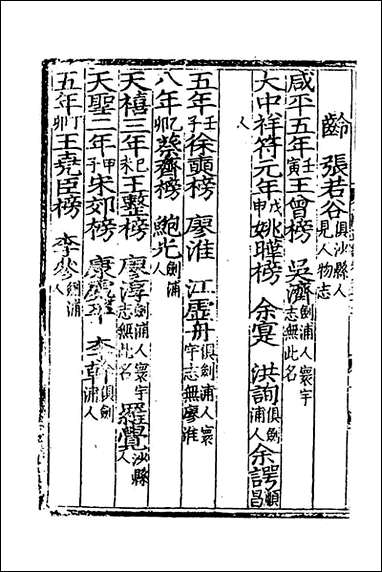 齡 張若谷俱沙縣人見人物志
咸平五年壬寅王曾榜 吳濟劍浦人寰宇志無此名
大中祥符元年戊申姚曄榜 余寔 洪詢俱劍浦人 余諤順昌
人
五年壬子徐奭榜 廖淮 江虛舟俱劍浦人寰宇志無廖淮
八年乙卯蔡齊榜 鮑光劍浦人
天禧三年己未王整榜 廖淳劍浦人寰宇志無此名 羅覺沙縣人
天聖二年甲子宋郊榜 康 李 俱劍浦人
五年丁卯王堯臣榜 李 劍浦人